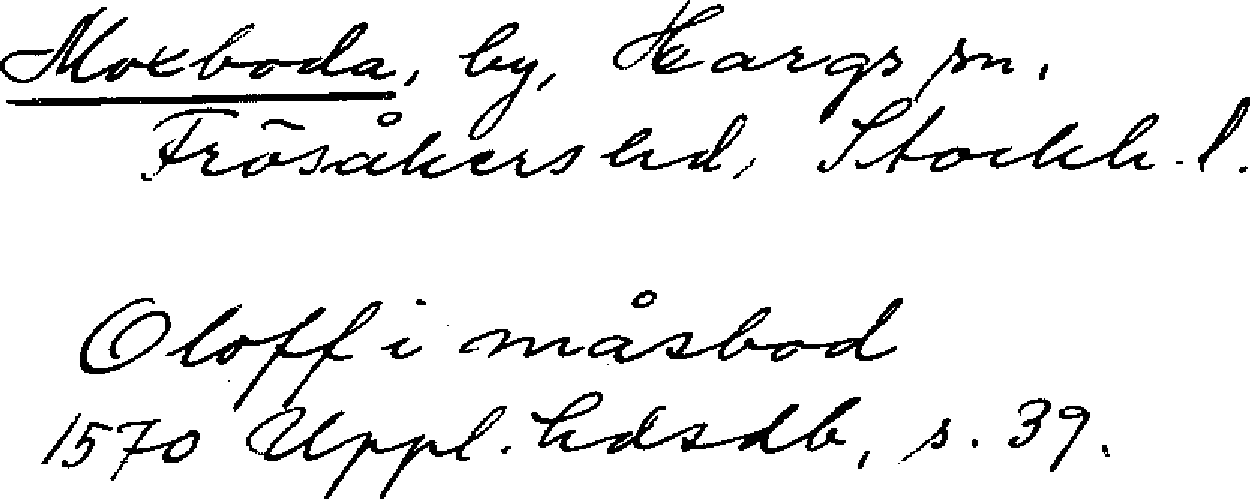 Moxboda, by, Hargs sn.
Frösåkers hd, Stockh. l.
Oloff i måsbod
1570 Uppl. hdsdb, s. 39.